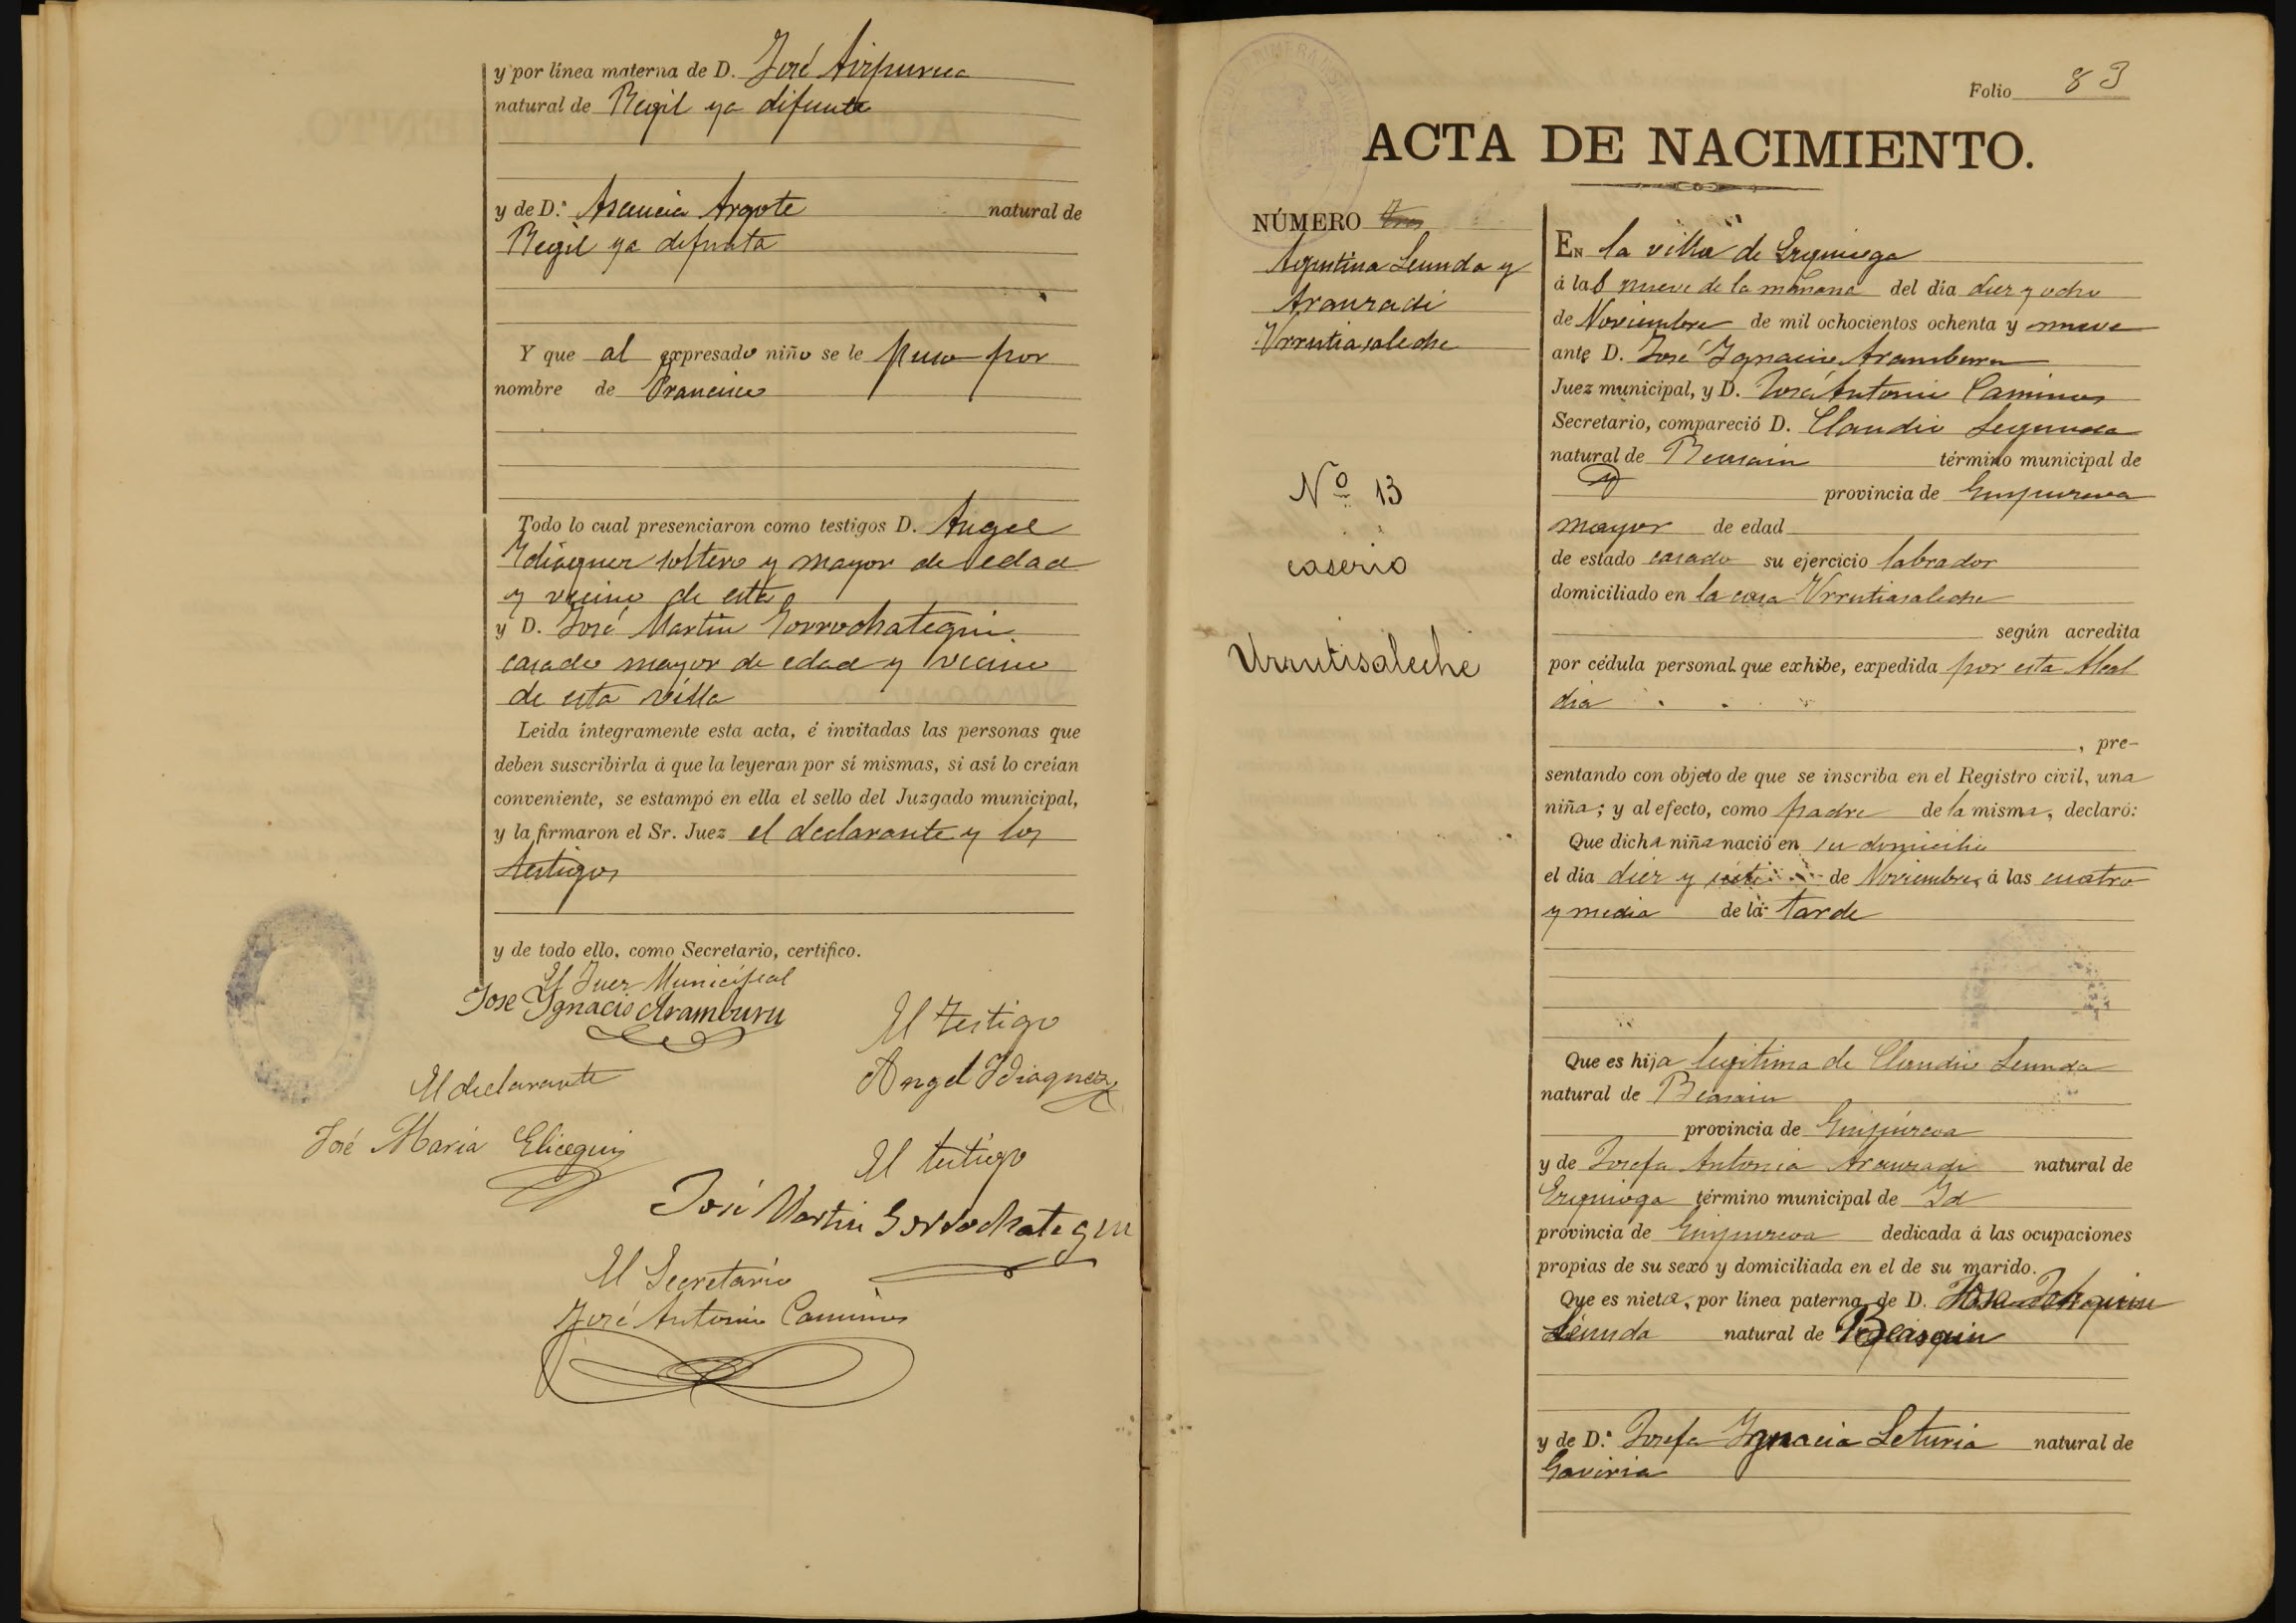 y por línea materna de D. José Aizpurua
natural de Regil ya difunto
y de D.ª Asencia Argote natural de
Regil ya difunta
Y que al expresado niño se le puso por
nombre de Francisco
Todo lo cual presenciaron como testigos D. Angel
Ydiaquez soltero y mayor de edad
y vecino de esta
y D. José Martin Gorrochategui
casado mayor de edad y vecino
de esta villa
Leida íntegramente esta acta, é invitadas las personas que
deben suscribirla á que la leyeran por sí mismas, si así lo creían
conveniente, se estampó en ella el sello del Juzgado municipal,
y la firmaron el Sr. Juez el declarante y los
testigos
y de todo ello, como Secretario, certifico.
El Juez Municipal
Jose Ygnacio Aramburu
El testigo
Angel Ydiaquez
El declarante
José Maria Elicegui
El testigo
José Martin Gorrochategui
El Secretario
José Antonio Caminos
Folio 83
ACTA DE NACIMIENTO.
NÚMERO
Agustina Leunda y
Aranzadi
Urrutiasaleche
Nº 13
caserio
Urrutisaleche
EN la villa de Ezquioga
á las nueve de la mañana del día diez y ocho
de Noviembre de mil ochocientos ochenta y nueve
ante D. José Ygnacio Aramburu
Juez municipal, y D. José Antonio Caminos
Secretario, compareció D. Claudio
natural de Beasain término municipal de
provincia de Guipuzcoa
mayor de edad
de estado casado su ejercicio labrador
domiciliado en la casa Urrutiasaleche
según acredita
por cédula personal que exhibe, expedida por esta Alcal
dia
, pre-
sentando con objeto de que se inscriba en el Registro civil, una
niña; y al efecto, como padre de la misma, declaró:
Que dicha niña nació en su domicilio
el día diez y siete de Noviembre, á las cuatro
y media de la tarde
Que es hija legitima de Claudio Leunda
natural de Beasain
provincia de Guipúzcoa
y de Josefa Antonia Aranzadi natural de
Ezquioga término municipal de Id
provincia de Guipuzcoa dedicada á las ocupaciones
propias de su sexo y domiciliada en el de su marido.
Que es nieta, por línea paterna de D. José Joaquin
Leunda natural de Beasain
y de D.ª Josefa Ygnacia Leturia natural de
Gaviria